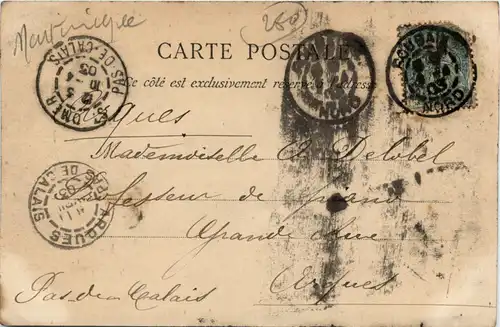 Martinique
280
CARTE POSTALE
Ce côté est exclusivement réservé à l'adresse
ST OMER PAS-DE-CALAIS
03
ROUBAIX
NORD
NORD
Arques
Mademoiselle Delobel
Professeur de Piano
Grande Rue
ARQUES PAS DE CALAIS
03
Arques
Pas-de-Calais